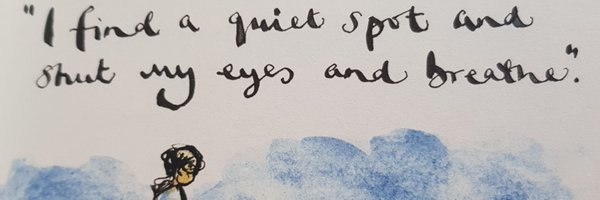 "I find a quiet spot and
shut my eyes and breathe".